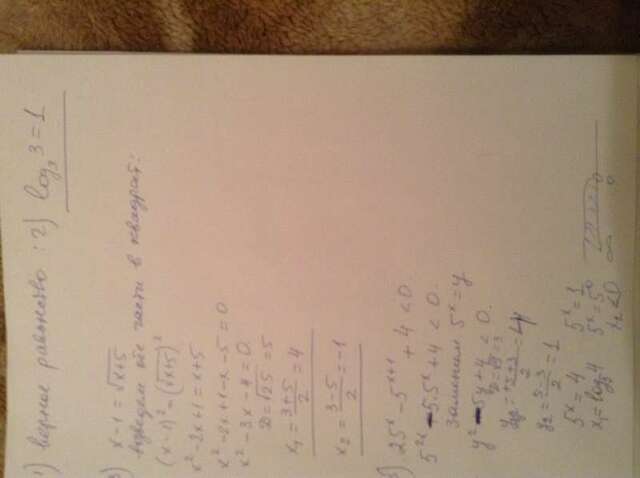 1) верное равенство : 2) log₃ 3 = 1
3) x-1 = √x+5
возведем обе части в квадрат:
(x-1)² = (√x+5)²
x² -2x+1 = x+5
x² -2x+1-x-5 = 0
x² -3x-4 = 0
D = √25 = 5
x₁ = 3+5/2 = 4
x₂ = 3-5/2 = -1
25ˣ - 5ˣ⁺¹ + 4 < 0
5²ˣ - 5·5ˣ + 4 < 0
Заменим 5ˣ = y
y² - 5y + 4 < 0.
= 4
y₂ = 5-3/2 = 1
5ˣ = 4 5ˣ = 1
x₁ = log₅4 5ˣ = 5⁰
x₂ < 0